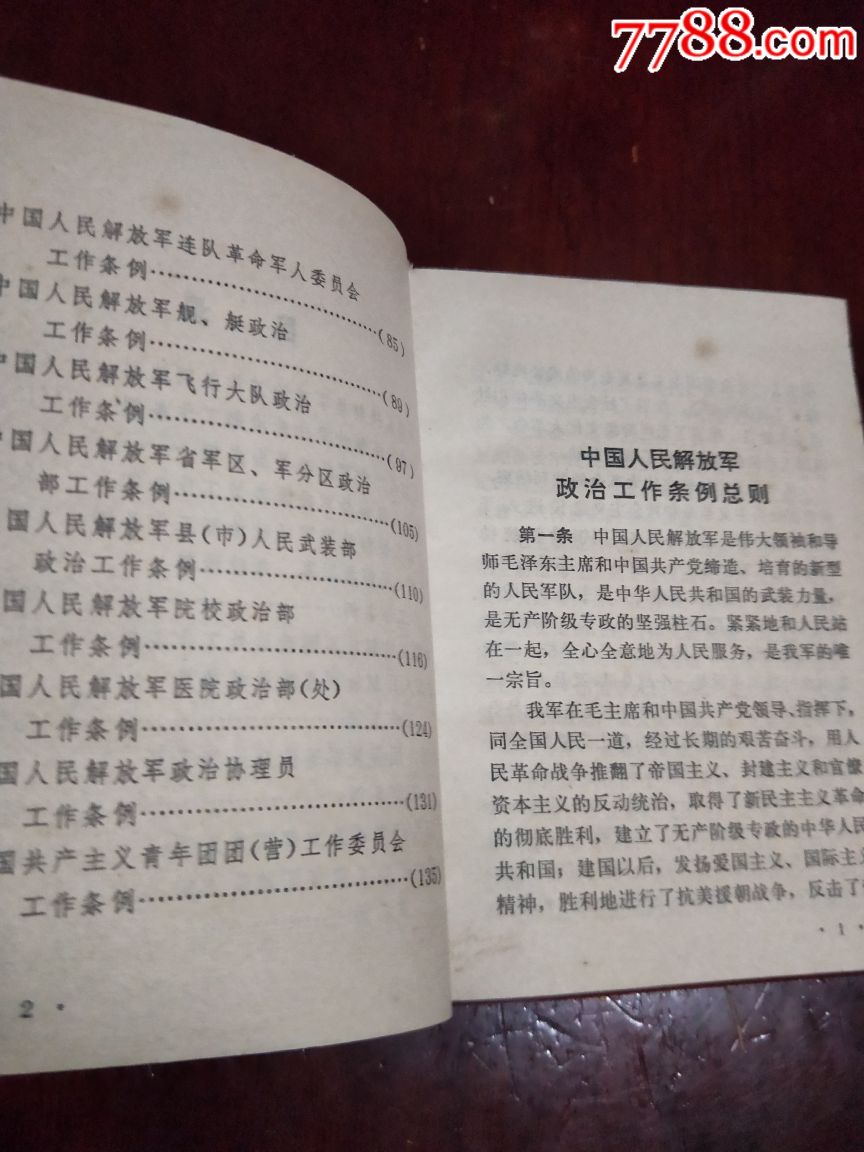 7788.com
中国人民解放军连队革命军人委员会
工作条例……………………………(85)
中国人民解放军舰、艇政治
工作条例……………………………(89)
中国人民解放军飞行大队政治
工作条例……………………………(97)
中国人民解放军省军区、军分区政治
部工作条例…………………………(105)
国人民解放军县(市)人民武装部
政治工作条例………………………(110)
国人民解放军院校政治部
工作条例……………………………(116)
国人民解放军医院政治部(处)
工作条例……………………………(124)
国人民解放军政治协理员
工作条例……………………………(131)
国共产主义青年团团(营)工作委员会
工作条例……………………………(135)
2 ·
中国人民解放军
政治工作条例总则
第一条 中国人民解放军是伟大领袖和导
师毛泽东主席和中国共产党缔造、培育的新型
的人民军队，是中华人民共和国的武装力量，
是无产阶级专政的坚强柱石。紧紧地和人民站
在一起，全心全意地为人民服务，是我军的唯
一宗旨。
我军在毛主席和中国共产党领导、指挥下，
同全国人民一道，经过长期的艰苦奋斗，用人
民革命战争推翻了帝国主义、封建主义和官僚
资本主义的反动统治，取得了新民主主义革命
的彻底胜利，建立了无产阶级专政的中华人民
共和国；建国以后，发扬爱国主义、国际主义
精神，胜利地进行了抗美援朝战争，反击了
· 1 ·